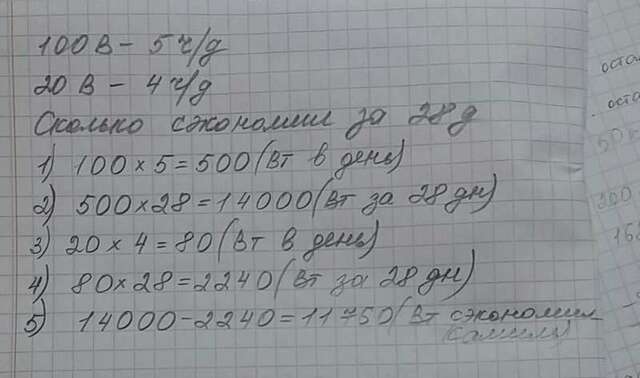 100 В – 5 ч/д
20 В – 4 ч/д
Сколько сэкономии за 28 д
1) 100 × 5 = 500 (Вт в день)
2) 500 × 28 = 14000 (Вт за 28 дн)
3) 20 × 4 = 80 (Вт в день)
4) 80 × 28 = 2240 (Вт за 28 дн)
5) 14000 – 2240 = 11760 (Вт сэкономил
оста
оста
50
300